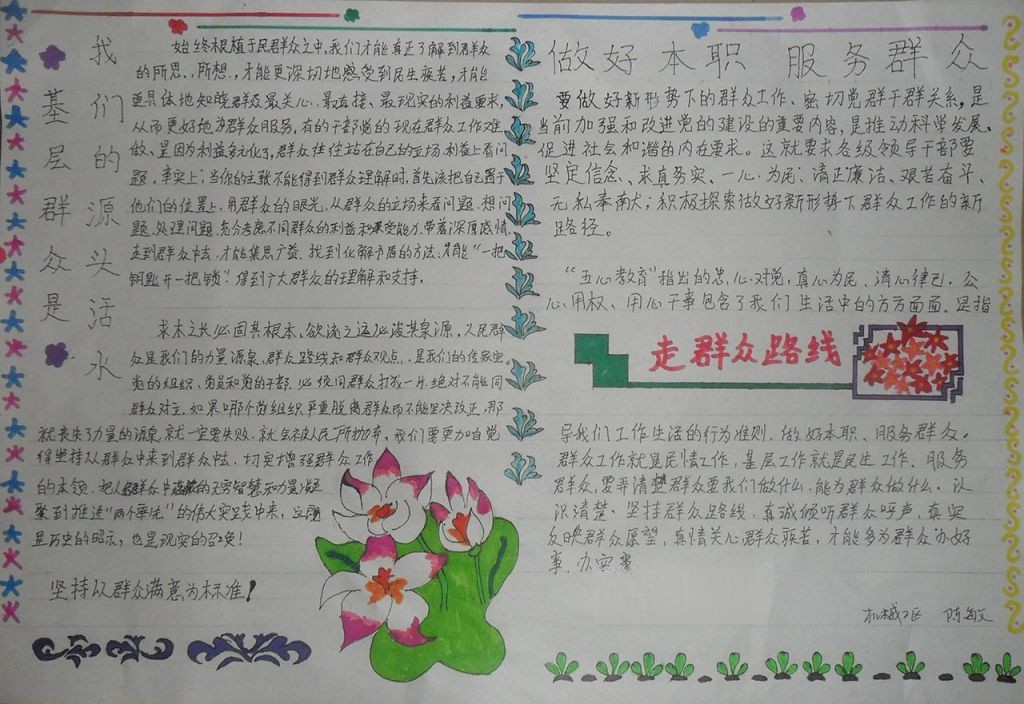 我们的源头活水
基层群众是
始终根植于民群众之中,我们才能真正了解到群众
的所思、所想,才能更深切地感受到民生疾苦,才能
更具体地知晓群众最关心、最直接、最现实的利益要求,
从而更好地为群众服务,有的干部觉的现在群众工作难
做、是因为利益多元化了,群众往往站在自己的立场、利益上看问
题。事实上;当你的主张不能得到群众理解时,首先该把自己置于
他们的位置上,用群众的眼光,从群众的立场来看问题、想问
题、处理问题,充分考虑不同群众的利益和承受能力,带着深厚感情
走到群众中去,才能集思广益、找到化解矛盾的方法,才能“一把
钥匙开一把锁”!得到广大群众的理解和支持。
求木之长必固其根本、欲流之远必浚其泉源,人民群
众是我们的力量源泉,群众路线和群众观点,是我们的传家宝。
党的组织、党员和党的干部,必须同群众打成一片,绝对不能同
群众对立。如果哪个党组织严重脱离群众而不能坚决改正,那
就丧失了力量的源泉,就一定要失败,就会被人民所抛弃,我们需更加自觉
得坚持从群众中来到群众中去,切实增强群众工作
的本领,把人民群众中的无穷智慧和力量凝
聚到推进“两个率先”的伟大实践中来,这既
是历史的昭示,也是现实的召唤!
坚持以群众满意为标准!
做好本职 服务群众
要做好新形势下的群众工作、密切党群干群关系,是
当前加强和改进党的建设的重要内容,是推动科学发展、
促进社会和谐的内在要求。这就要求各级领导干部要
坚定信念、求真务实、一心为民;清正廉洁、艰苦奋斗、
无私奉献;积极探索做好新形势下群众工作的新
路径。
“五心教育”指出的忠心对党,真心为民,清心律己,公
心用权、用心干事包含了我们生活中的方方面面。是指
走群众路线
导我们工作生活的行为准则,做好本职、服务群众。
群众工作就是民情工作,基层工作就是民生工作。服务
群众,要弄清楚群众要我们做什么,能为群众做什么。认
识清楚。坚持群众路线,真诚倾听群众呼声,真实
反映群众愿望,真情关心群众疾苦,才能多为群众办好
事、办实事
机械工区 陈敏